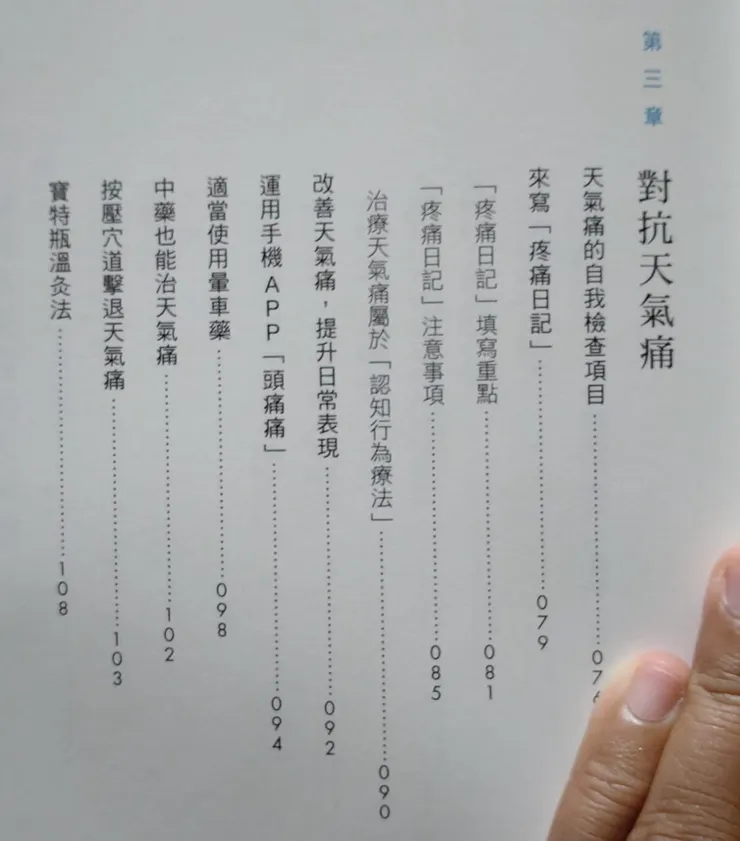 第三章
對抗天氣痛
天氣痛的自我檢查項目……076
來寫「疼痛日記」……079
「疼痛日記」填寫重點……081
「疼痛日記」注意事項……085
治療天氣痛屬於「認知行為療法」……090
改善天氣痛，提升日常表現……092
運用手機APP「頭痛痛」……094
適當使用暈車藥……098
中藥也能治天氣痛……102
按壓穴道擊退天氣痛……103
寶特瓶溫灸法……108